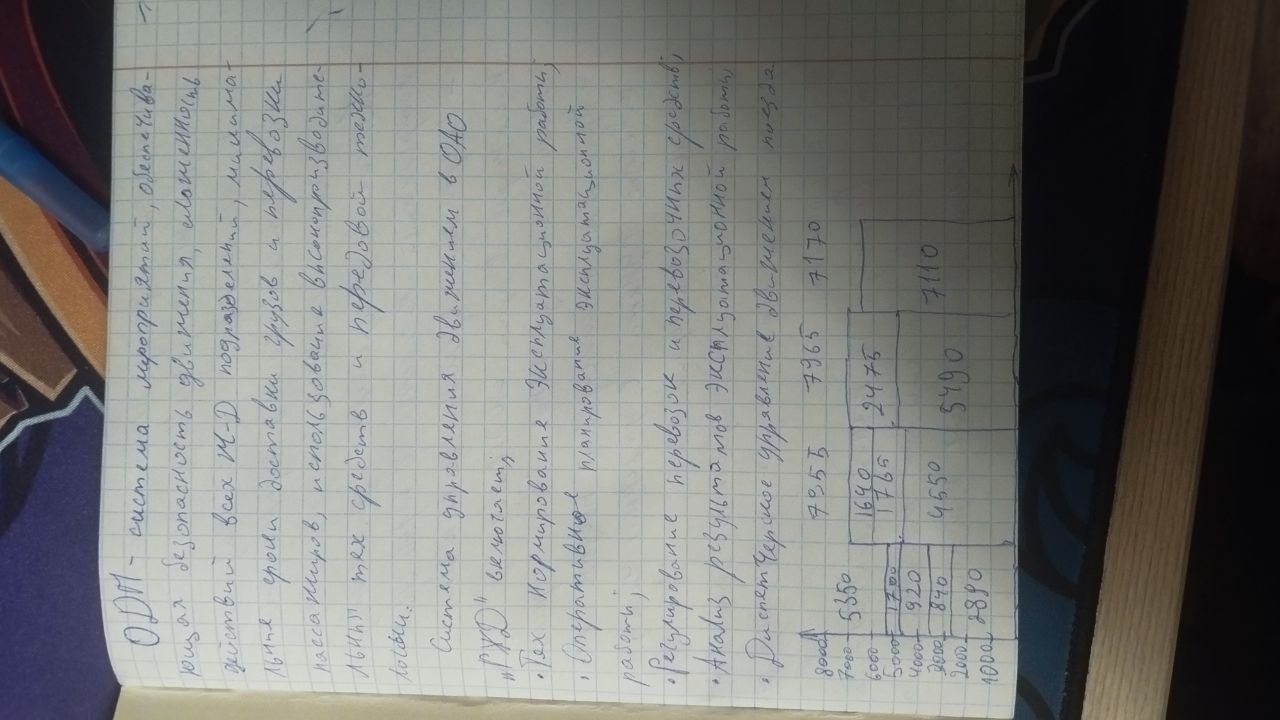 ОДП - система мероприятий, обеспечива-
ющая безопасность движения, слаженность
действий всех Ж-Д подразделений, минима-
льные сроки доставки грузов и перевозки
пассажиров, использование высокопроизводите-
льных тех средств и передовой техно-
логии.
Система управления движением в ОАО
"РЖД" включает;
• Тех нормирование эксплуатационной работы;
• Оперативное планирование эксплуатационной
работы;
• Регулирование перевозок и перевозочных средств;
• Анализ результатов эксплуатационной работы;
• Диспетчерское управление движением поезда
8000
7000
6000
5000
4000
3000
2000
1000
5350 7955 7965 7170
1640 2475
1765
920
840 4550 5490 7110